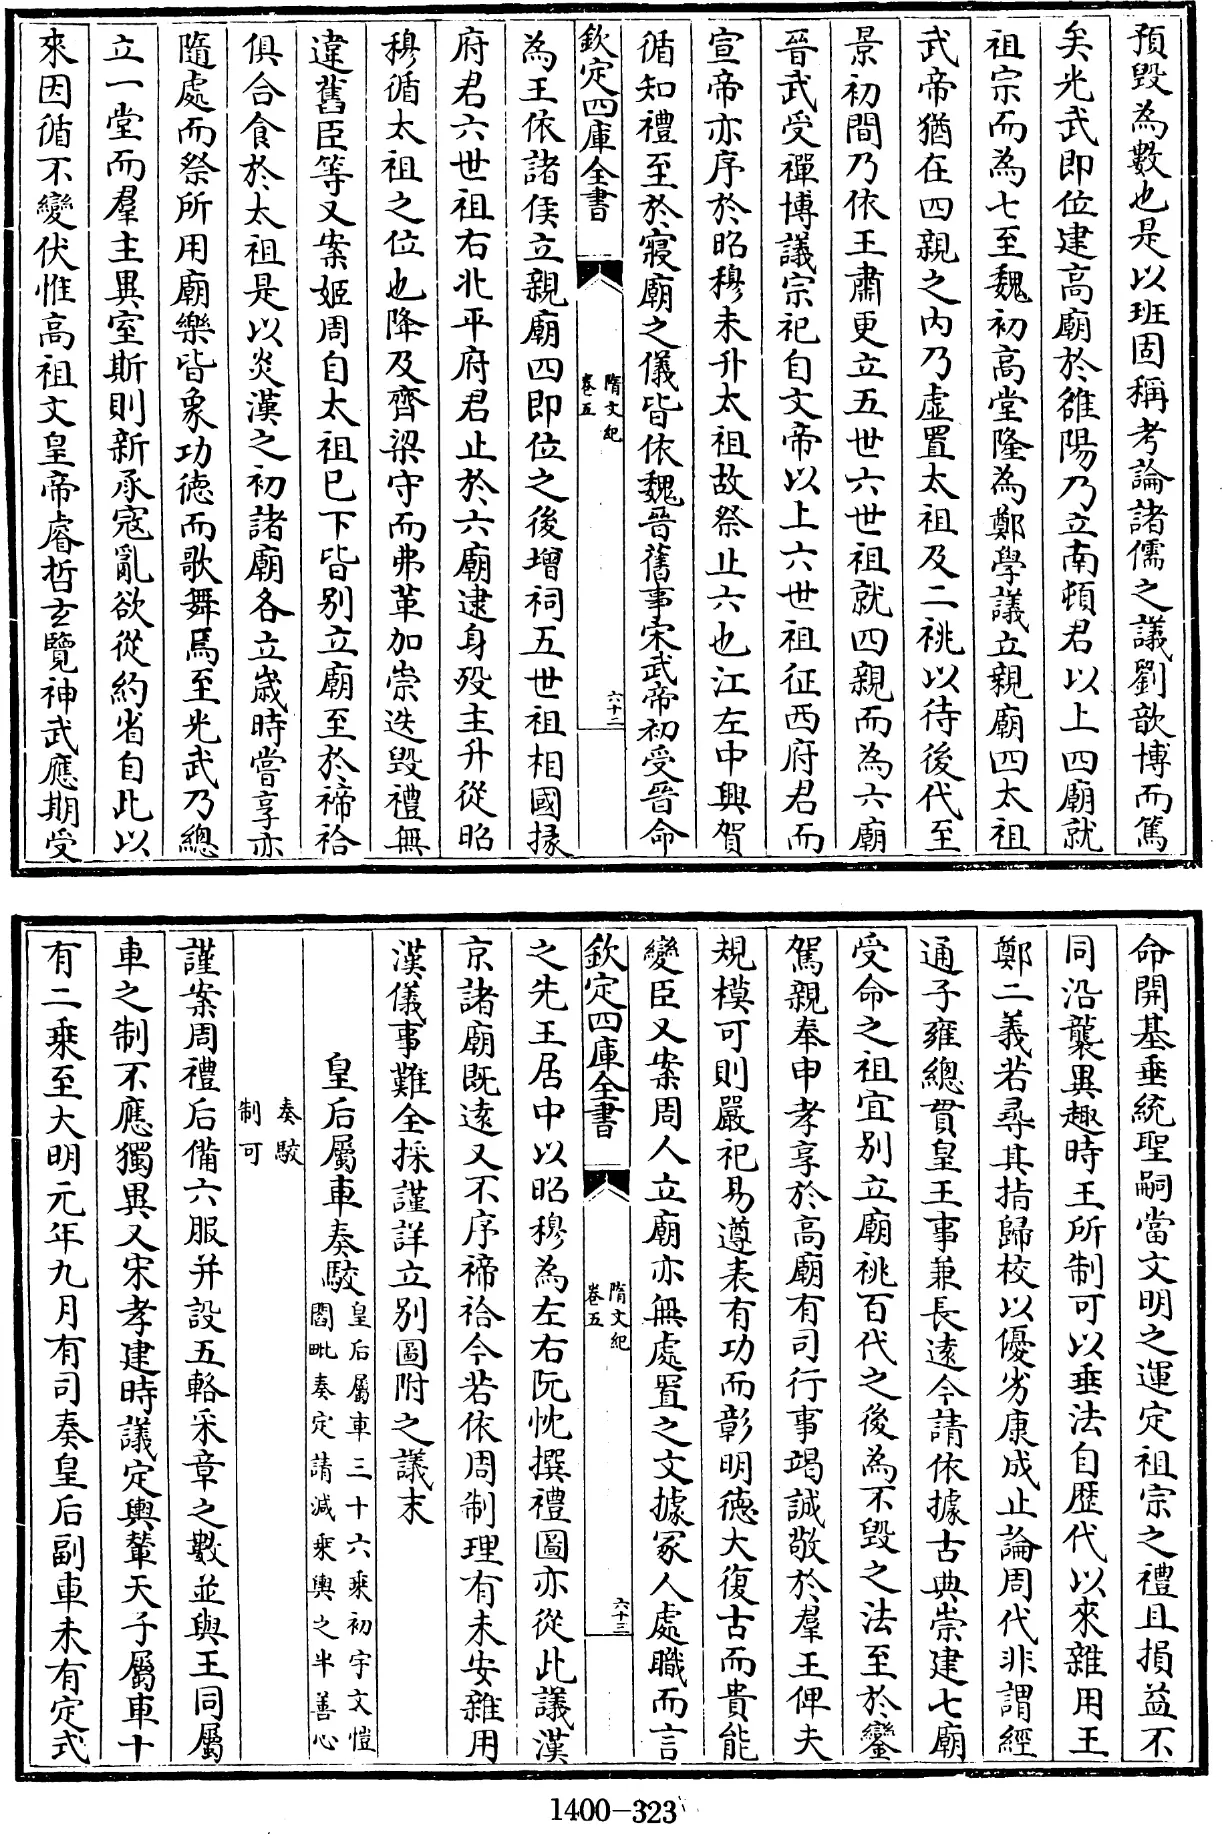 預毀為數也是以班固稱考論諸儒之議劉歆博而篤
矣光武即位建高廟於雒陽乃立南頓君以上四廟就
祖宗而為七至魏初高堂隆為鄭學議立親廟四太祖
武帝猶在四親之內乃虛置太祖及二祧以待後代至
景初間乃依王肅更立五世六世祖就四親而為六廟
晉武受禪博議宗祀自文帝以上六世祖征西府君而
宣帝亦序於昭穆未升太祖故祭止六也江左中興賀
循知禮至於寢廟之儀皆依魏晉舊事宋武帝初受晉命
欽定四庫全書
隋文紀
卷五
六十二
為王依諸侯立親廟四即位之後增祠五世祖相國掾
府君六世祖右北平府君止於六廟逮身歿主升從昭
穆循太祖之位也降及齊梁守而弗革加崇迭毀禮無
違舊臣等又案姬周自太祖已下皆別立廟至於禘祫
俱合食於太祖是以炎漢之初諸廟各立歲時嘗享亦
隨處而祭所用廟樂皆象功德而歌舞焉至光武乃總
立一堂而羣主異室斯則新承寇亂欲從約省自此以
來因循不變伏惟高祖文皇帝睿哲玄覽神武應期受
命開基垂統聖嗣當文明之運定祖宗之禮且損益不
同沿襲異趣時王所制可以垂法自歷代以來雜用王
鄭二義若尋其指歸校以優劣康成止論周代非謂經
通子雍總貫皇王事兼長遠今請依據古典崇建七廟
受命之祖宜別立廟祧百代之後為不毀之法至於鑾
駕親奉申孝享於高廟有司行事竭誠敬於羣王俾夫
規模可則嚴祀易遵表有功而彰明德大復古而貴能
變臣又案周人立廟亦無處置之文據冢人處職而言
欽定四庫全書
隋文紀
卷五
六十三
之先王居中以昭穆為左右阮忱撰禮圖亦從此議漢
京諸廟既遠又不序禘祫今若依周制理有未安雜用
漢儀事難全採謹詳立別圖附之議末
皇后屬車奏駮
皇后屬車三十六乘初宇文愷
閻毗奏定請減乘輿之半善心
奏駮
制可
謹案周禮后備六服并設五輅采章之數並與王同屬
車之制不應獨異又宋孝建時議定輿輦天子屬車十
有二乘至大明元年九月有司奏皇后副車未有定式
1400-323